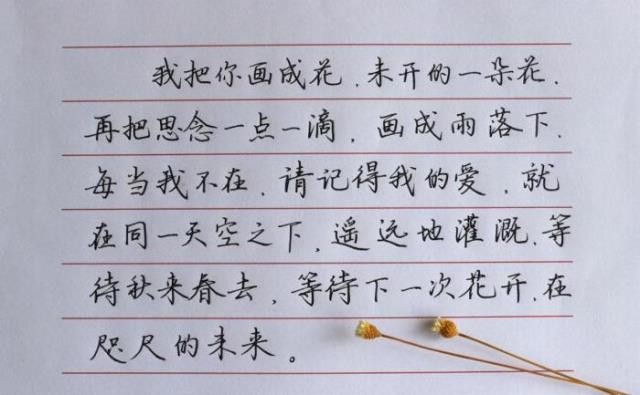 我把你画成花,未开的一朵花,
再把思念一点一滴,画成雨落下.
每当我不在,请记得我的爱,就
在同一天空之下,遥远地灌溉.等
待秋来春去,等待下一次花开.在
咫尺的未来。